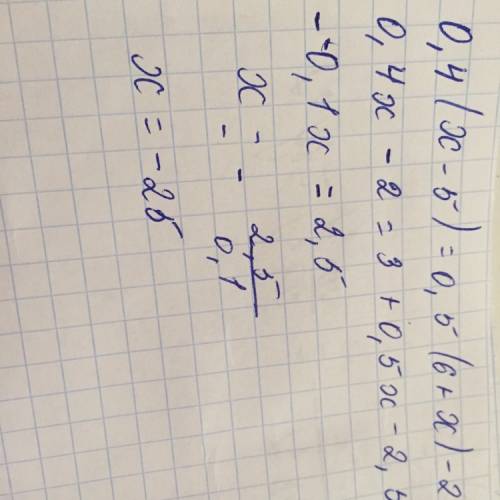 0,4(x-5)=0,5(6+x)-2
0,4x-2=3+0,5x-2,5
-0,1x=2,5
x=-2,5/0,1
x=-25